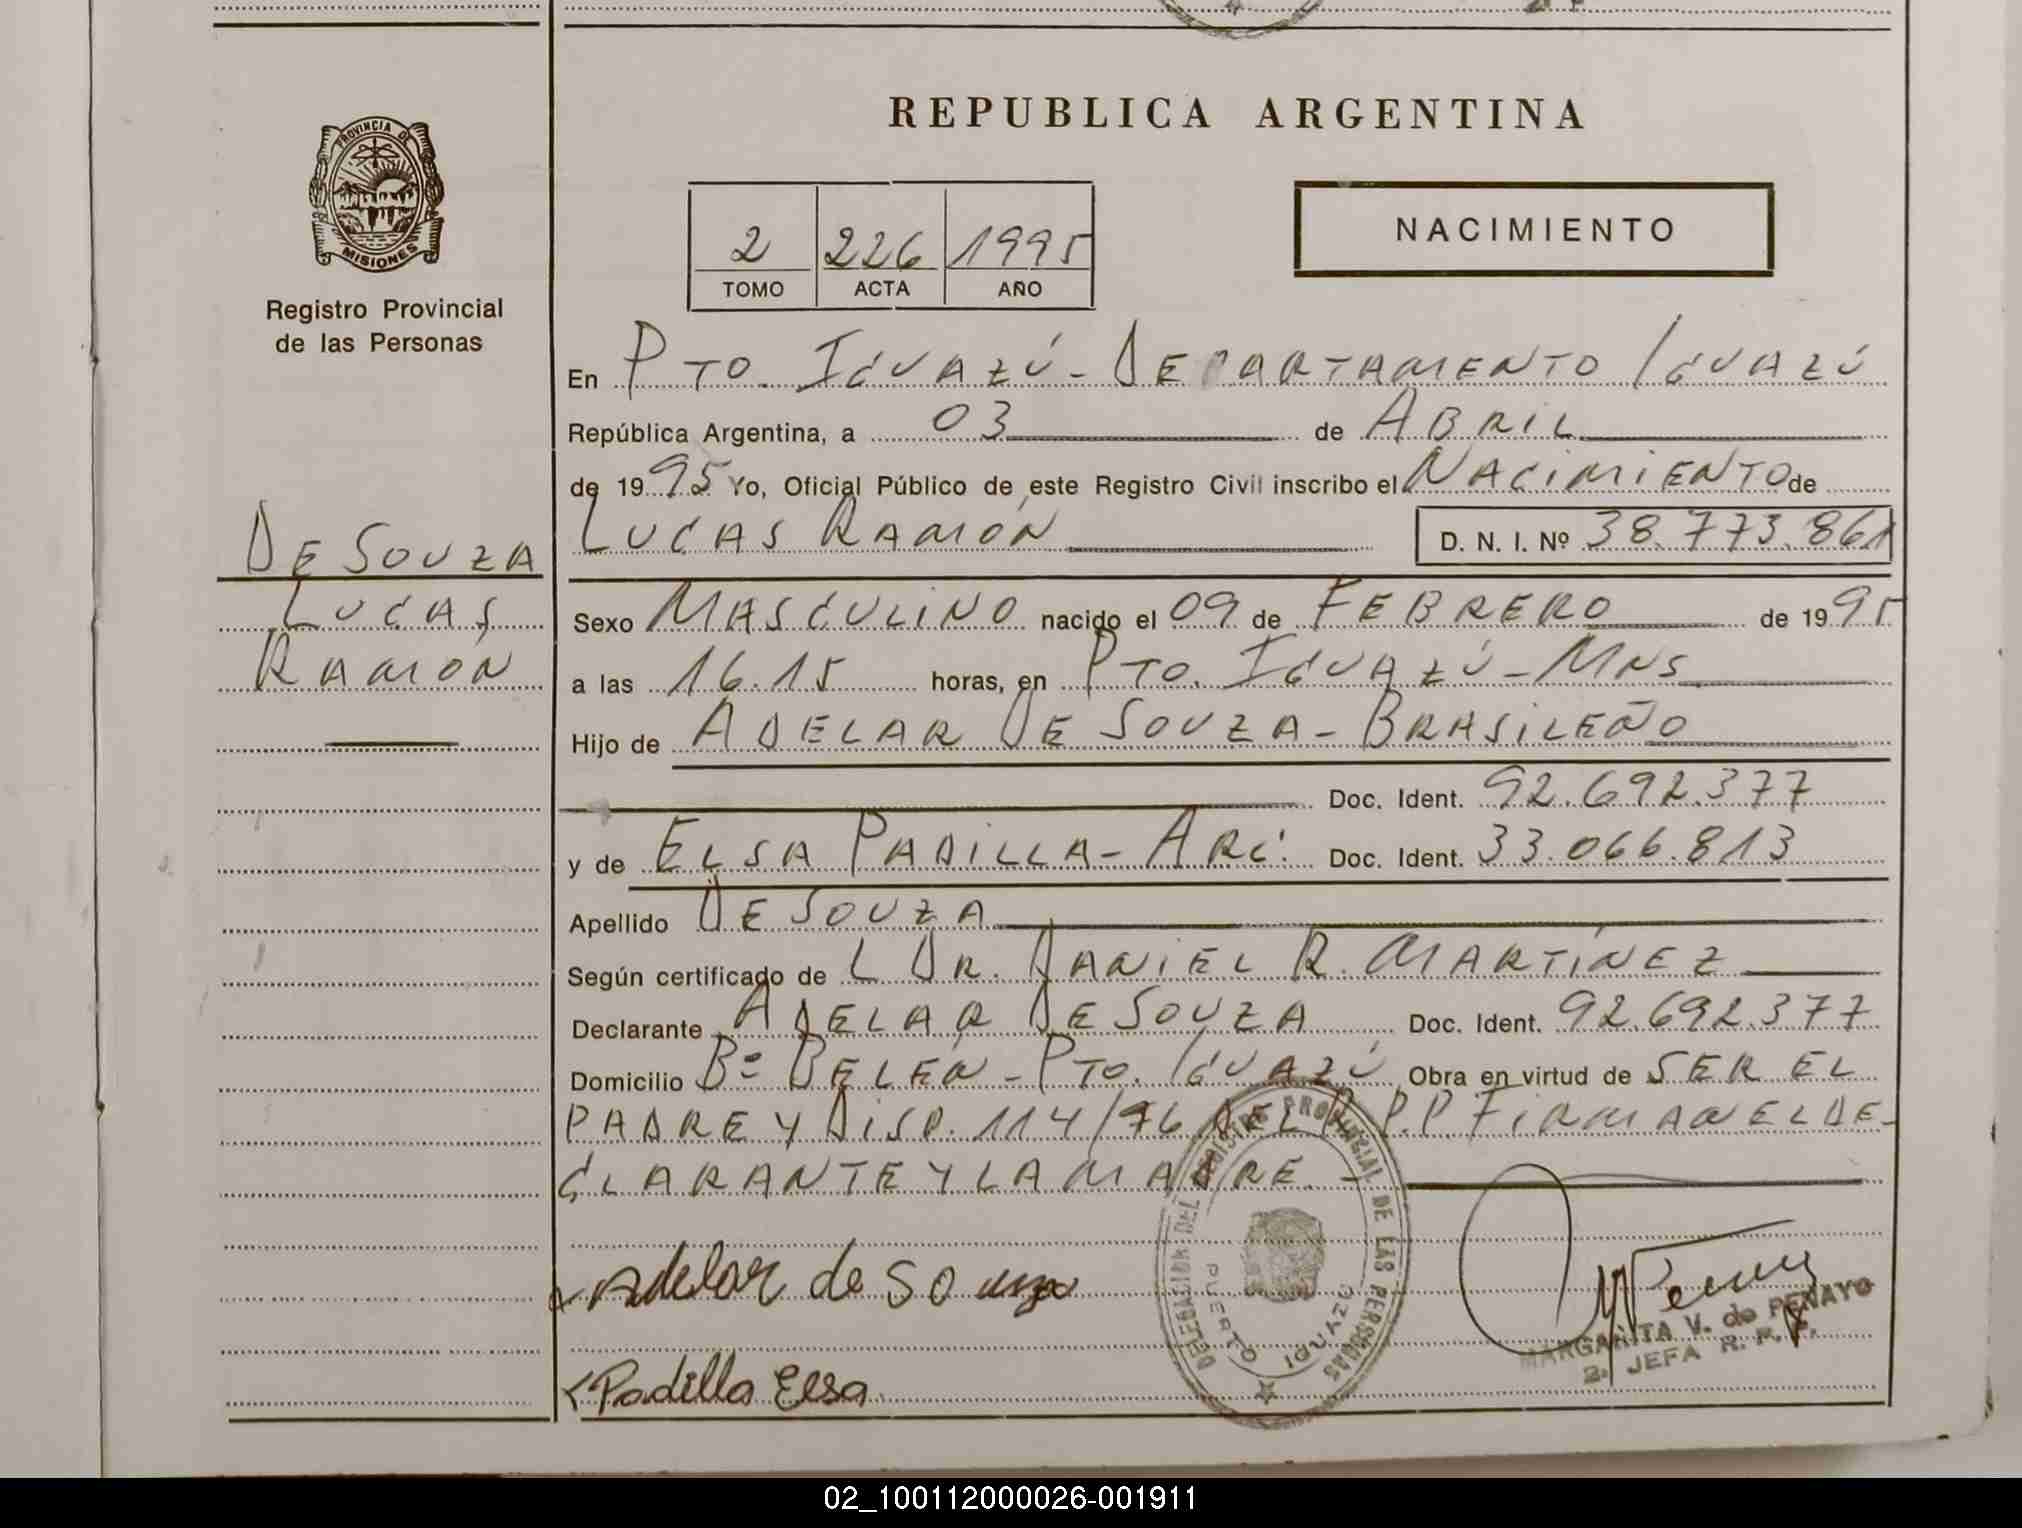 REPUBLICA ARGENTINA
PROVINCIA DE
MISIONES
Registro Provincial
de las Personas
2 226 1995
TOMO ACTA AÑO
NACIMIENTO
En PTO. IGUAZÚ - DEPARTAMENTO IGUAZÚ
República Argentina, a 03 de ABRIL
de 1995 Yo, Oficial Público de este Registro Civil inscribo el NACIMIENTO de
LUCAS RAMÓN D. N. I. Nº 38.773.861
DE SOUZA
LUCAS
RAMÓN
Sexo MASCULINO nacido el 09 de FEBRERO de 1995
a las 16.15 horas, en PTO. IGUAZÚ - MNS
Hijo de ADELAR DE SOUZA - BRASILEÑO
Doc. Ident. 92.692.377
y de ELSA PADILLA - ARG. Doc. Ident. 33.066.813
Apellido DE SOUZA
Según certificado de L DR. DANIEL R. MARTÍNEZ
Declarante ADELAR DE SOUZA Doc. Ident. 92.692.377
Domicilio Bº BELÉN - PTO. IGUAZÚ Obra en virtud de SER EL
PADRE Y DISP. 114/76 DEL R.P.P FIRMAN EL DE-
CLARANTE Y LA MADRE. -
Adelar de Souza
Padilla Elsa
DELEGACION DEL REGISTRO PROVINCIAL DE LAS PERSONAS
PUERTO IGUAZU
MARGARITA V. de PENAYO
2. JEFA R. P. P.
02_100112000026-001911